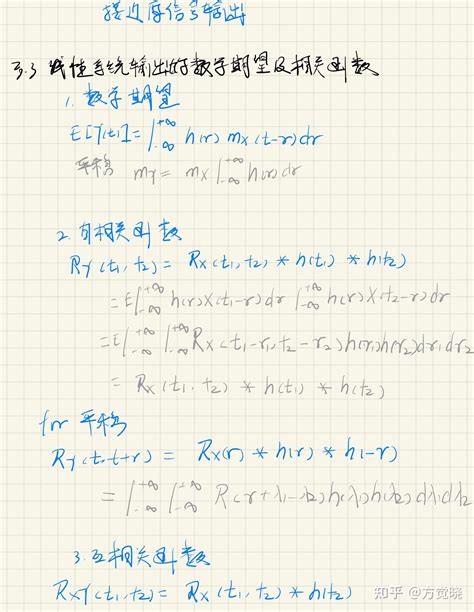 信号输出
3.3 线性系统输出的数学期望及相关函数
1. 数学期望
E[Y(t)] = ∫_{-∞}^{+∞} h(r) m_X(t-r)dr
平稳 m_Y = m_X ∫_{-∞}^{+∞} h(r)dr
2. 自相关函数
R_Y(t₁,t₂) = R_X(t₁,t₂) * h(t₁) * h(t₂)
= E∫_{-∞}^{+∞} h(r)X(t₁-r)dr ∫_{-∞}^{+∞} h(r)X(t₂-r)dr
= E∫_{-∞}^{+∞} ∫_{-∞}^{+∞} R_X(t₁-r₁,t₂-r₂)h(r₁)h(r₂)dr₁dr₂
= R_X(t₁,t₂) * h(t₁) * h(t₂)
for 平稳
R_Y(t,t+r) = R_X(r) * h(r) * h(-r)
= ∫_{-∞}^{+∞} ∫_{-∞}^{+∞} R(r+λ₁-λ₂)h(λ₁)h(λ₂)dλ₁dλ₂
3. 互相关函数
R_XY(t₁,t₂) = R_X(t₁,t₂) * h(t₂)
知乎 @方觉晓